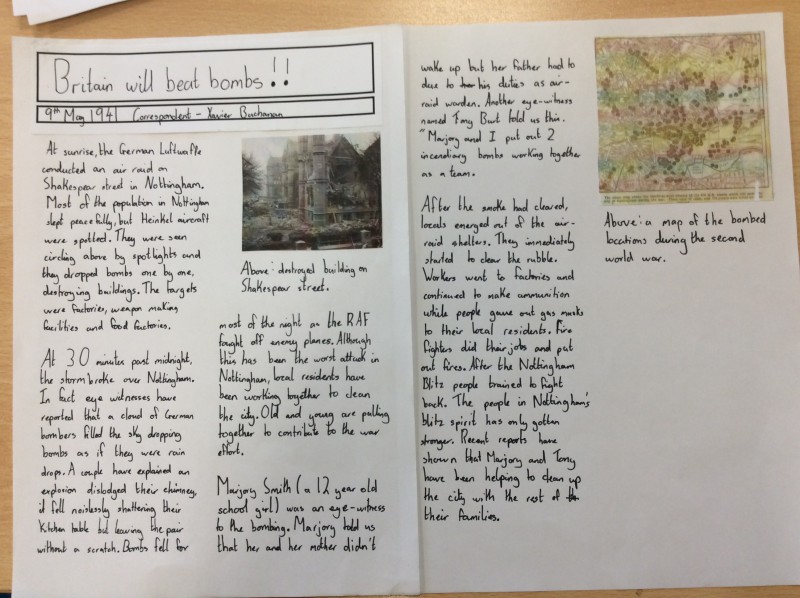 Britain will beat bombs!!
9th May 1941 Correspondent - Xavier Buchanan
At sunrise, the German Luftwaffe
conducted an air raid on
Shakespear street in Nottingham.
Most of the population in Nottingham
slept peacefully, but Heinkel aircraft
were spotted. They were seen
circling above by spotlights and
they dropped bombs one by one,
destroying buildings. The targets
were factories, weapon making
facilities and food factories.
At 30 minutes past midnight,
the storm broke over Nottingham.
In fact eye witnesses have
reported that a cloud of German
bombers filled the sky dropping
bombs as if they were rain
drops. A couple have explained an
explosion dislodged their chimney,
it fell noislessly shattering their
kitchen table but leaving the pair
without a scratch. Bombs fell for
Above: destroyed building on
Shakespear street.
most of the night as the RAF
fought off enemy planes. Although
this has been the worst attack in
Nottingham, local residents have
been working together to clean
the city. Old and young are pulling
together to contribute to the war
effort.
Marjory Smith (a 12 year old
school girl) was an eye-witness
to the bombing. Marjory told us
that her and her mother didn't
wake up but her father had to
due to his duties as air-
raid warden. Another eye-witness
named Tony Burt told us this.
"Marjory and I put out 2
incendiary bombs working together
as a team.
After the smoke had cleared,
locals emerged out of the air-
raid shelters. They immediately
started to clear the rubble.
Workers went to factories and
continued to make ammunition
while people gave out gas masks
to their local residents. Fire
fighters did their jobs and put
out fires. After the Nottingham
Blitz people trained to fight
back. The people in Nottingham's
blitz spirit has only gotten
stronger. Recent reports have
shown that Marjory and Tony
have been helping to clean up
the city with the rest of
their families.
Above: a map of the bombed
locations during the second
world war.